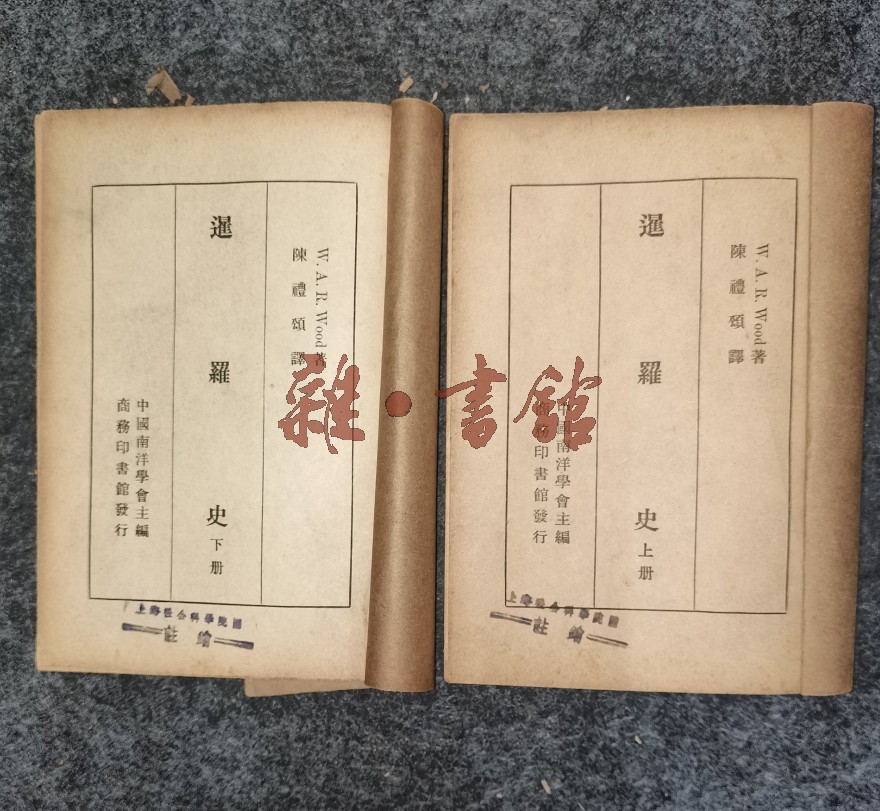 W. A. R. Wood 著
陳禮頌譯
暹羅史 下册
中國南洋學會主編
商務印書館發行
上海社会科学院圖
註銷
W. A. R. Wood 著
陳禮頌譯
暹羅史 上册
中國南洋學會主編
商務印書館發行
上海社会科学院圖
註銷
雜·書館